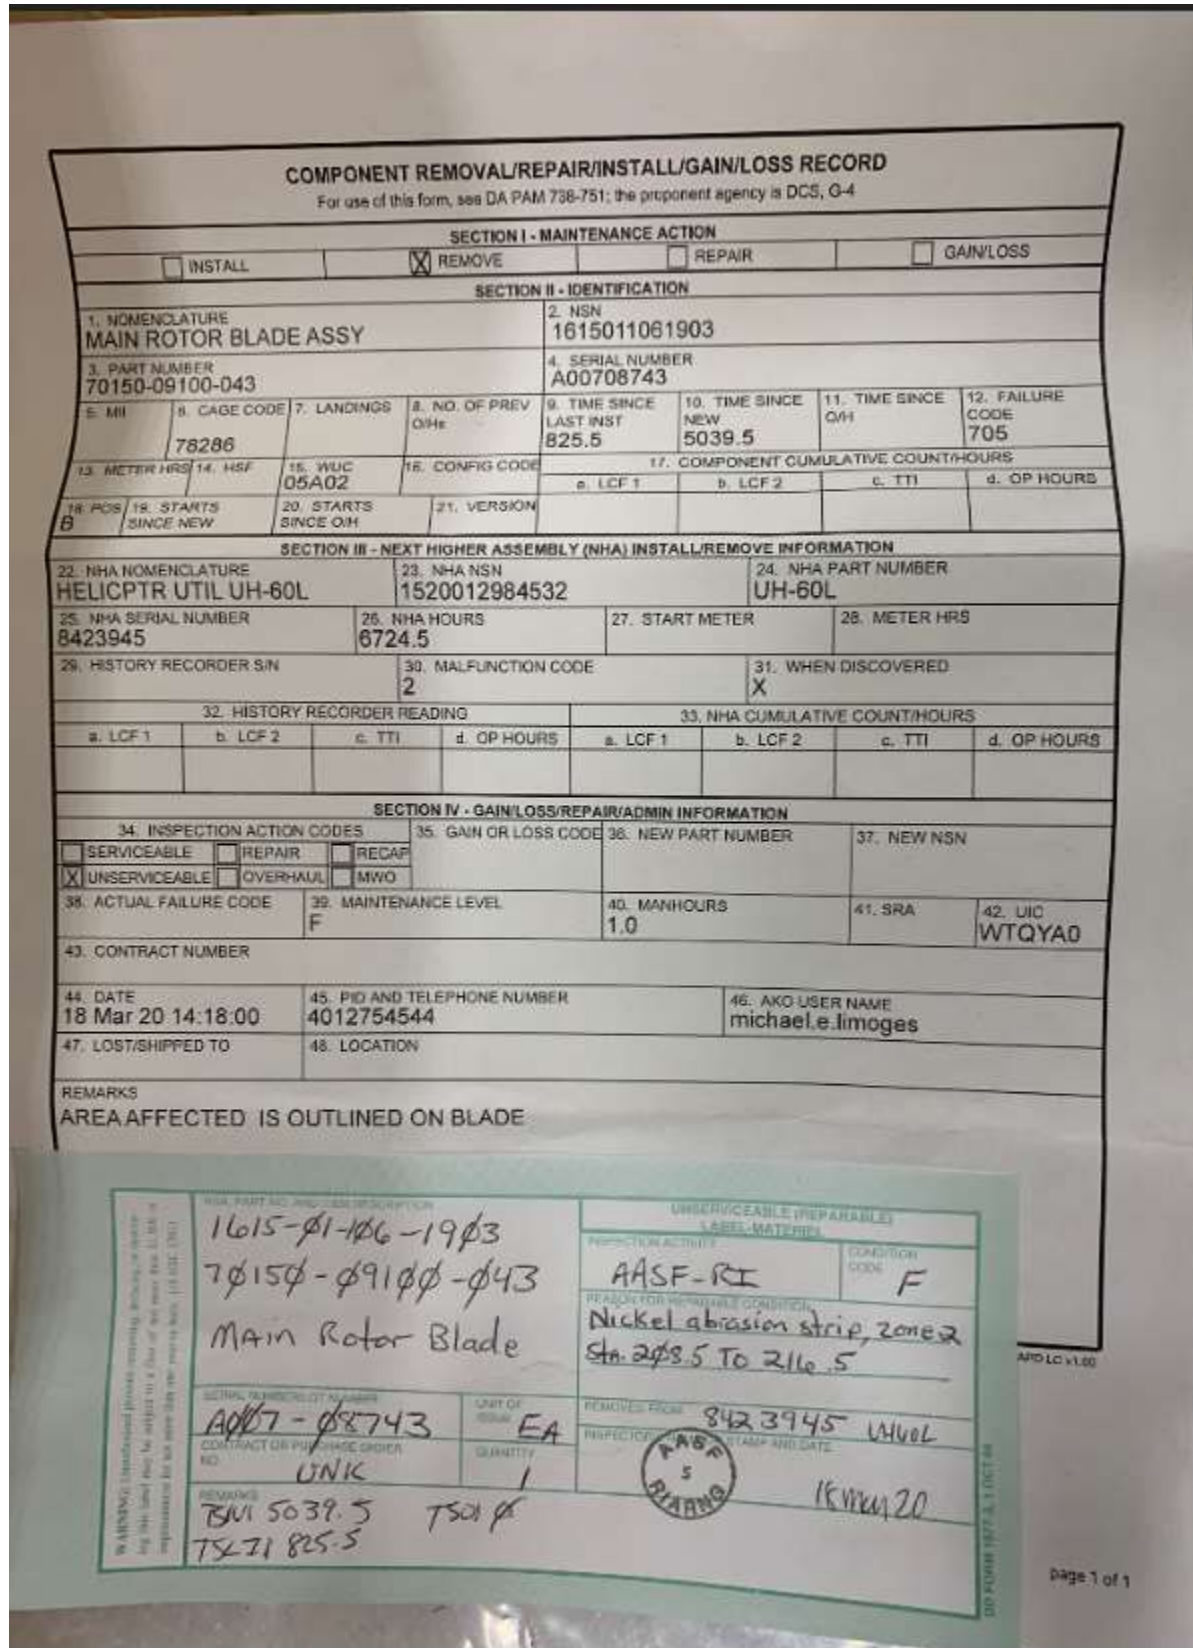 COMPONENT REMOVAL/REPAIR/INSTALL/GAIN/LOSS RECORD
For use of this form, see DA PAM 738-751; the proponent agency is DCS, G-4
SECTION I - MAINTENANCE ACTION
INSTALL
X REMOVE
REPAIR
GAIN/LOSS
SECTION II - IDENTIFICATION
1. NOMENCLATURE
MAIN ROTOR BLADE ASSY
2. NSN
1615011061903
3. PART NUMBER
70150-09100-043
4. SERIAL NUMBER
A00708743
5. MII
6. CAGE CODE
78286
7. LANDINGS
8. NO. OF PREV O/Hs
9. TIME SINCE LAST INST
825.5
10. TIME SINCE NEW
5039.5
11. TIME SINCE O/H
12. FAILURE CODE
705
13. METER HRS
14. HSF
15. WUC
05A02
16. CONFIG CODE
17. COMPONENT CUMULATIVE COUNT/HOURS
a. LCF 1
b. LCF 2
c. TTI
d. OP HOURS
18. POS
B
19. STARTS SINCE NEW
20. STARTS SINCE O/H
21. VERSION
SECTION III - NEXT HIGHER ASSEMBLY (NHA) INSTALL/REMOVE INFORMATION
22. NHA NOMENCLATURE
HELICPTR UTIL UH-60L
23. NHA NSN
1520012984532
24. NHA PART NUMBER
UH-60L
25. NHA SERIAL NUMBER
8423945
26. NHA HOURS
6724.5
27. START METER
28. METER HRS
29. HISTORY RECORDER S/N
30. MALFUNCTION CODE
2
31. WHEN DISCOVERED
X
32. HISTORY RECORDER READING
33. NHA CUMULATIVE COUNT/HOURS
a. LCF 1
b. LCF 2
c. TTI
d. OP HOURS
a. LCF 1
b. LCF 2
c. TTI
d. OP HOURS
SECTION IV - GAIN/LOSS/REPAIR/ADMIN INFORMATION
34. INSPECTION ACTION CODES
SERVICEABLE
REPAIR
RECAP
X UNSERVICEABLE
OVERHAUL
MWO
35. GAIN OR LOSS CODE
36. NEW PART NUMBER
37. NEW NSN
38. ACTUAL FAILURE CODE
39. MAINTENANCE LEVEL
F
40. MANHOURS
1.0
41. SRA
42. UIC
WTQYA0
43. CONTRACT NUMBER
44. DATE
18 Mar 20 14:18:00
45. PID AND TELEPHONE NUMBER
4012754544
46. AKO USER NAME
michael.e.limoges
47. LOST/SHIPPED TO
48. LOCATION
REMARKS
AREA AFFECTED IS OUTLINED ON BLADE
APD LC v1.00
NSN, PART NO. AND ITEM DESCRIPTION
1615-01-106-1903
70150-09100-043
Main Rotor Blade
SERIAL NUMBER/LOT NUMBER
A007-08743
UNIT OF ISSUE
EA
CONTRACT OR PURCHASE ORDER NO.
UNK
QUANTITY
1
REMARKS
TSN 5039.5 TSO 0
TSLI 825.5
UNSERVICEABLE (REPARABLE)
LABEL-MATERIEL
INSPECTION ACTIVITY
AASF-RI
CONDITION CODE
F
REASON FOR REPARABLE CONDITION
Nickel abrasion strip, zone 2
Sta. 208.5 TO 216.5
REMOVED FROM
8423945
STAMP AND DATE
AASF
5
RIARNG
page 1 of 1